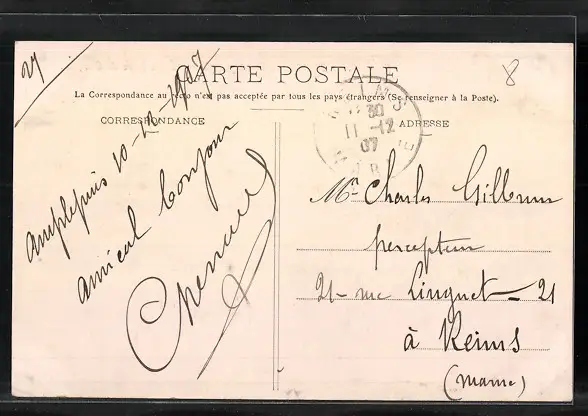 27
CARTE POSTALE
8
La Correspondance au recto n'est pas acceptée par tous les pays étrangers (Se renseigner à la Poste).
CORRESPONDANCE
ADRESSE
Amplepuis 10-12-1907
Amical bonjour
REIMS
30
11-12
07
MARNE
Mr Charles
percepteur
21 - rue Linguet - 21
à Reims
(Marne)